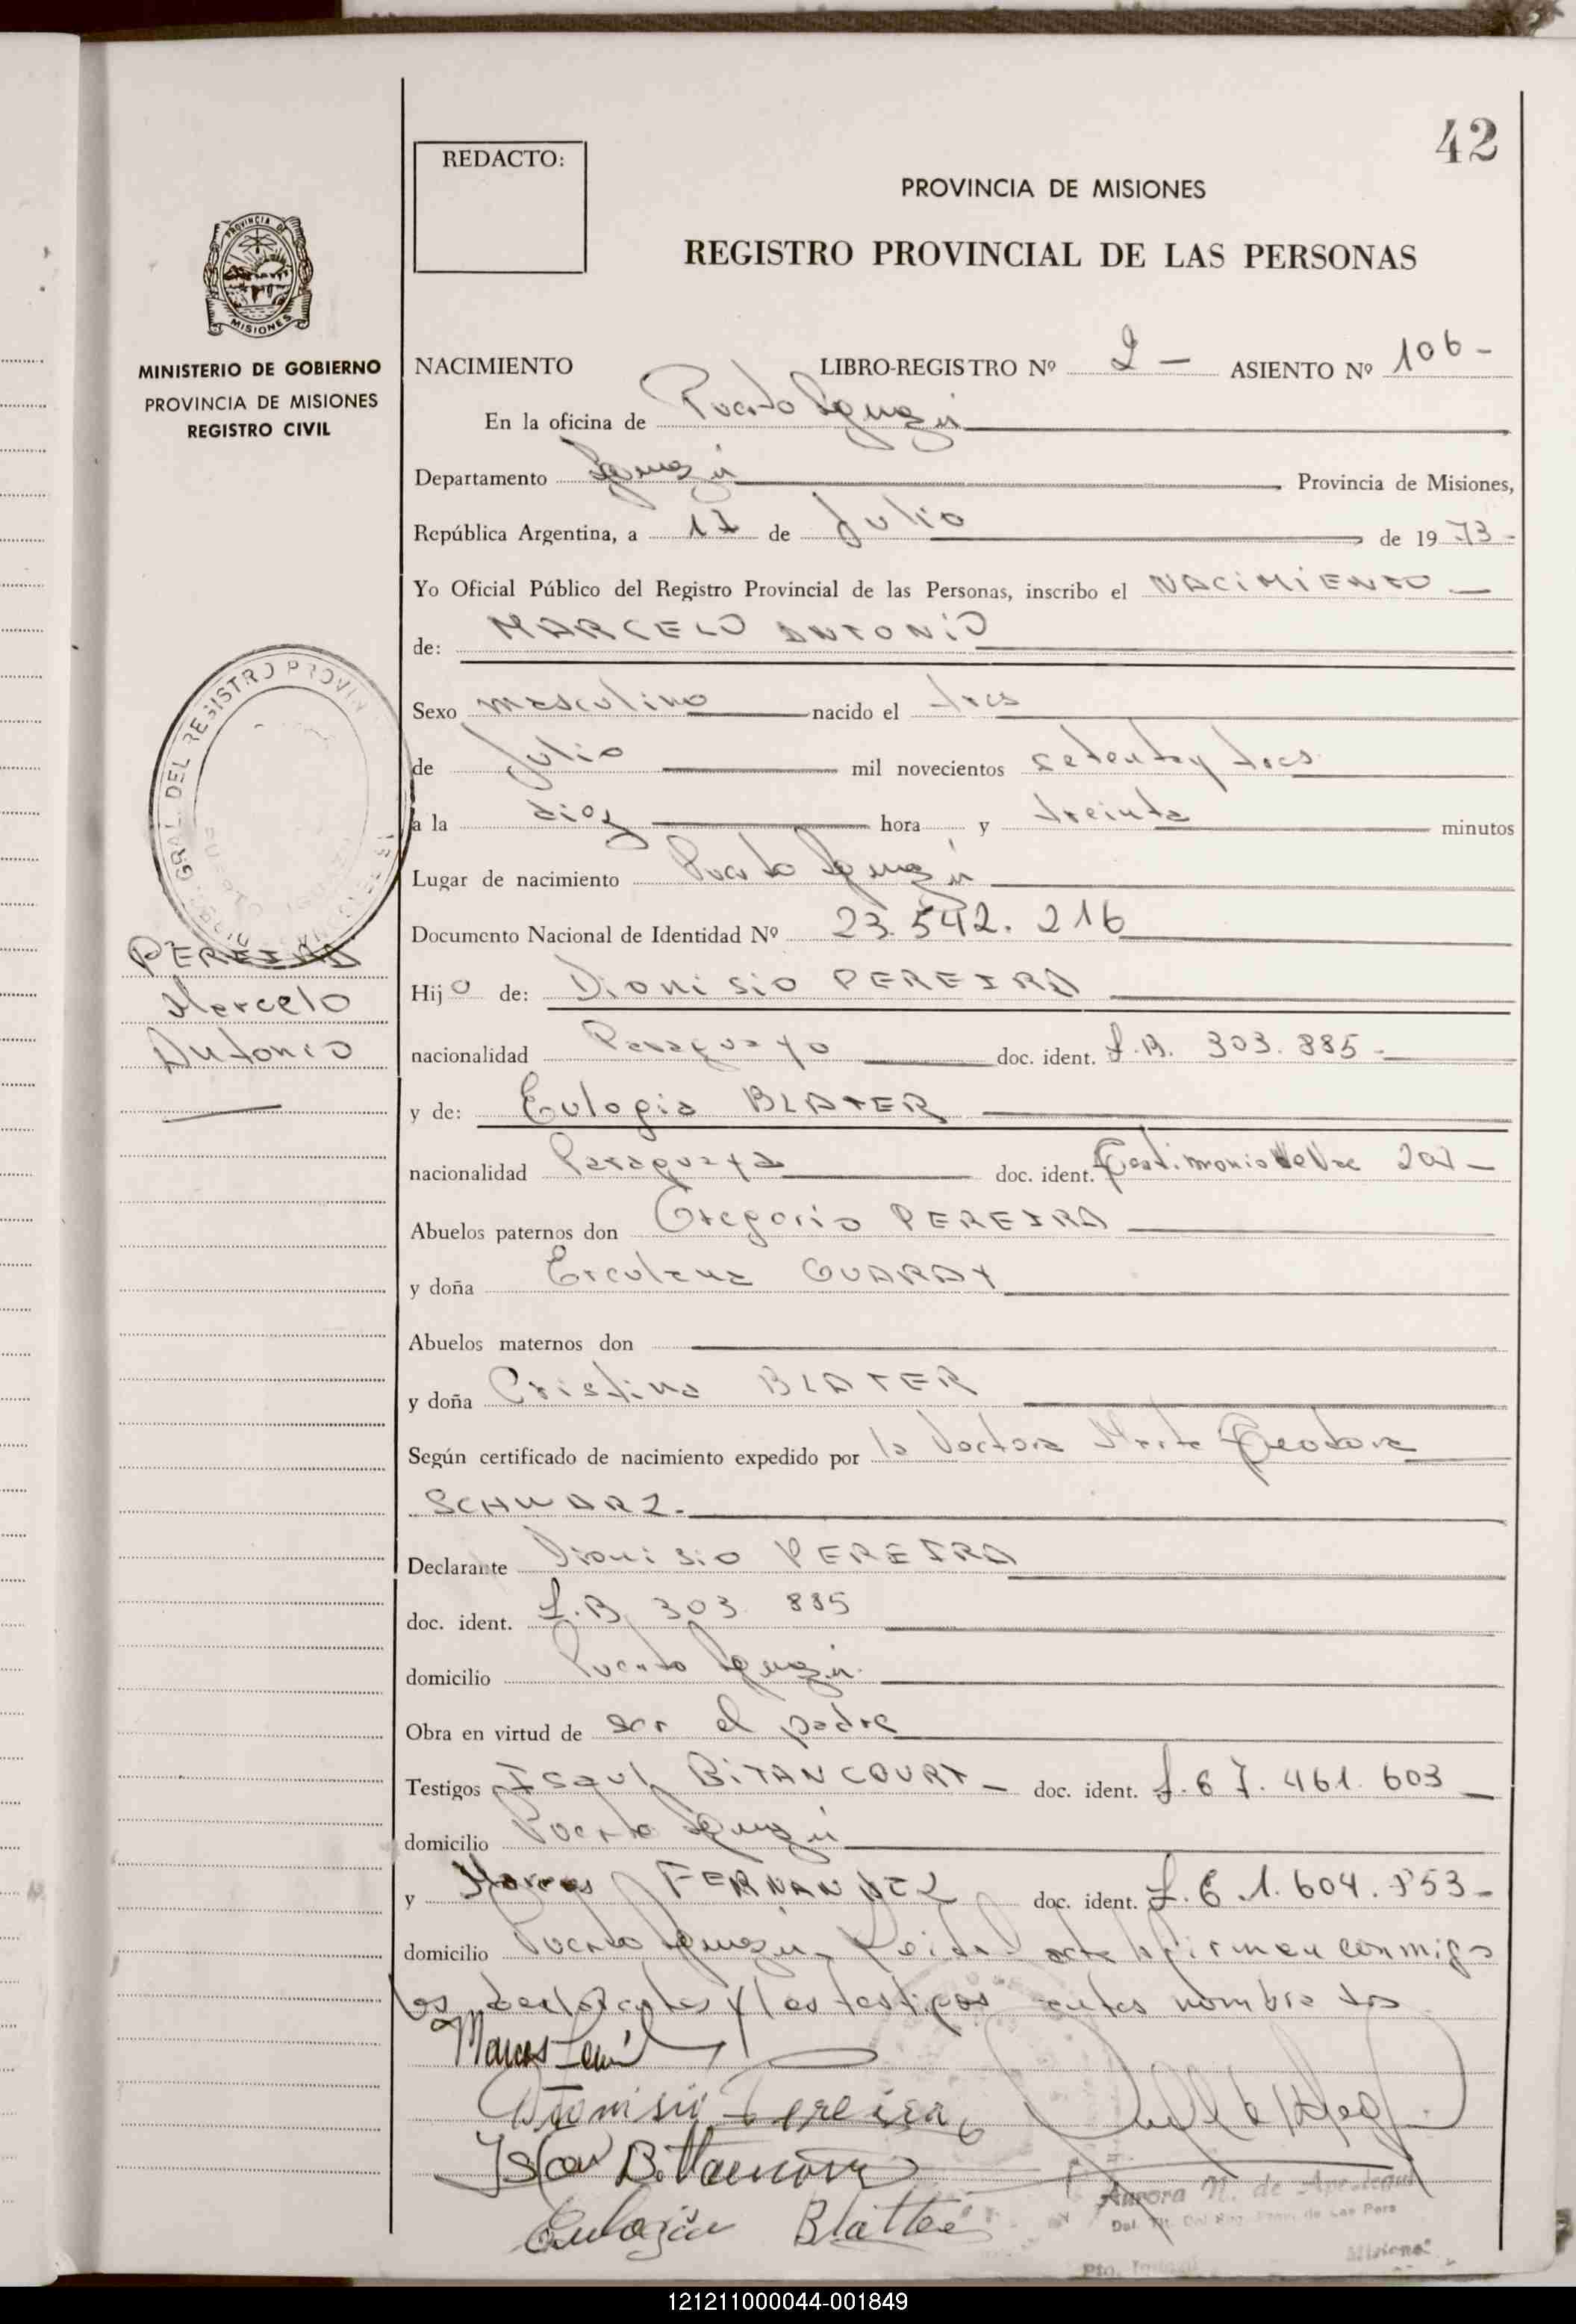 42
REDACTO:
PROVINCIA DE MISIONES
REGISTRO PROVINCIAL DE LAS PERSONAS
PROVINCIA DE
MISIONES
MINISTERIO DE GOBIERNO
PROVINCIA DE MISIONES
REGISTRO CIVIL
NACIMIENTO LIBRO-REGISTRO Nº 2 - ASIENTO Nº 106 -
En la oficina de Puerto Iguazú
Departamento Iguazú Provincia de Misiones,
República Argentina, a 17 de Julio de 1973-
Yo Oficial Público del Registro Provincial de las Personas, inscribo el NACIMIENTO
de: MARCELO ANTONIO
Sexo masculino nacido el tres
de Julio mil novecientos setenta y tres
a la diez hora y treinta minutos
Lugar de nacimiento Puerto Iguazú
Documento Nacional de Identidad Nº 23.542.216
GRAL. DEL REGISTRO PROVIN
PEREIRA
Marcelo
Antonio
Hijo de: Dionisio PEREIRA
nacionalidad Paraguayo doc. ident. 303.885-
y de: Eulogia BLATER
nacionalidad Paraguaya doc. ident. Testimonio 207-
Abuelos paternos don Gregorio PEREIRA
y doña Erculana GUARAY
Abuelos maternos don
y doña Cristina BLATER
Según certificado de nacimiento expedido por la Doctora Marta Teodora
SCHWARZ.
Declarante Dionisio PEREIRA
doc. ident. 303 885
domicilio Puerto Iguazú
Obra en virtud de ser el padre
Testigos Isaul BITANCOURT - doc. ident. 7.461.603
domicilio Puerto Iguazú
y Marcos FERNANDEZ doc. ident. 1.604.853-
domicilio Puerto Iguazú. Leida acta firman conmigo
los declarantes y los testigos antes nombrados
Marcos
Dionisio Pereira
Eulogia Blatter
Aurora N. de
Misiones
Pto. Iguazú
121211000044-001849